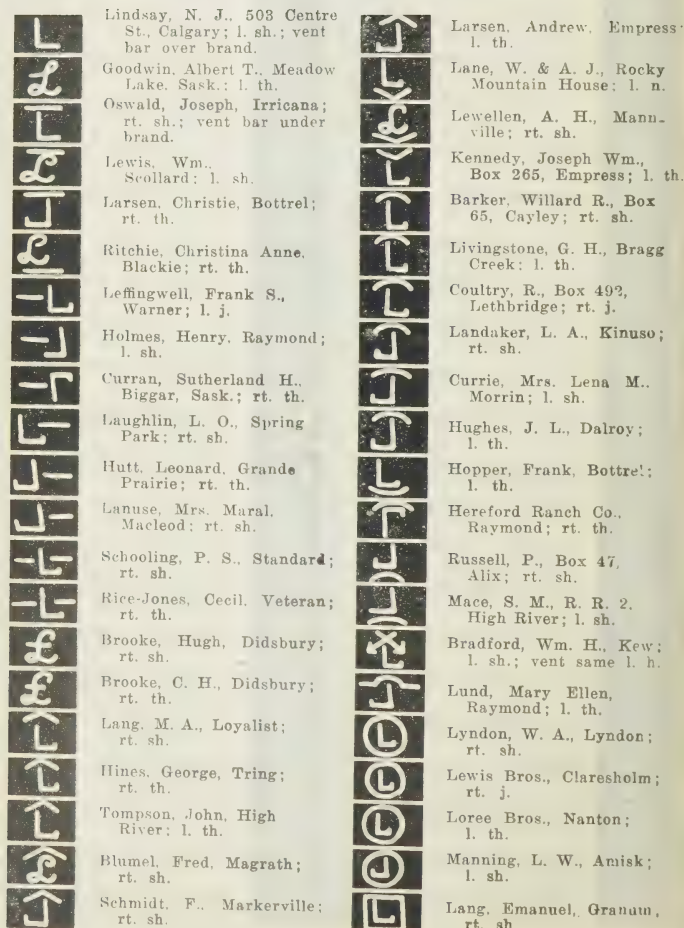 Lindsay, N. J., 503 Centre
St., Calgary; l. sh.; vent
bar over brand.
Goodwin, Albert T., Meadow
Lake, Sask.; l. th.
Oswald, Joseph, Irricana;
rt. sh.; vent bar under
brand.
Lewis, Wm.,
Scollard; l. sh.
Larsen, Christie, Bottrel;
rt. th.
Ritchie, Christina Anne,
Blackie; rt. th.
Leffingwell, Frank S.,
Warner; l. j.
Holmes, Henry, Raymond;
l. sh.
Curran, Sutherland H.,
Biggar, Sask.; rt. th.
Laughlin, L. O., Spring
Park; rt. sh.
Hutt, Leonard, Grande
Prairie; rt. th.
Lanuse, Mrs. Maral,
Macleod; rt. sh.
Schooling, P. S., Standard;
rt. sh.
Rice-Jones, Cecil, Veteran;
rt. th.
Brooke, Hugh, Didsbury;
rt. sh.
Brooke, C. H., Didsbury;
rt. th.
Lang, M. A., Loyalist;
rt. sh.
Hines, George, Tring;
rt. th.
Tompson, John, High
River; l. th.
Blumel, Fred, Magrath;
rt. sh.
Schmidt, F., Markerville;
rt. sh.
Larsen, Andrew, Empress
l. th.
Lane, W. & A. J., Rocky
Mountain House; l. n.
Lewellen, A. H., Mann-
ville; rt. sh.
Kennedy, Joseph Wm.,
Box 265, Empress; l. th.
Barker, Willard R., Box
65, Cayley; rt. sh.
Livingstone, G. H., Bragg
Creek; l. th.
Coultry, R., Box 492,
Lethbridge; rt. j.
Landaker, L. A., Kinuso;
rt. sh.
Currie, Mrs. Lena M.,
Morrin; l. sh.
Hughes, J. L., Dalroy;
l. th.
Hopper, Frank, Bottrel;
l. th.
Hereford Ranch Co.,
Raymond; rt. th.
Russell, P., Box 47,
Alix; rt. sh.
Mace, S. M., R. R. 2,
High River; l. sh.
Bradford, Wm. H., Kew;
l. sh.; vent same l. h.
Lund, Mary Ellen,
Raymond; l. th.
Lyndon, W. A., Lyndon;
rt. sh.
Lewis Bros., Claresholm;
rt. j.
Loree Bros., Nanton;
l. th.
Manning, L. W., Amisk;
l. sh.
Lang, Emanuel, Granum,
rt. sh